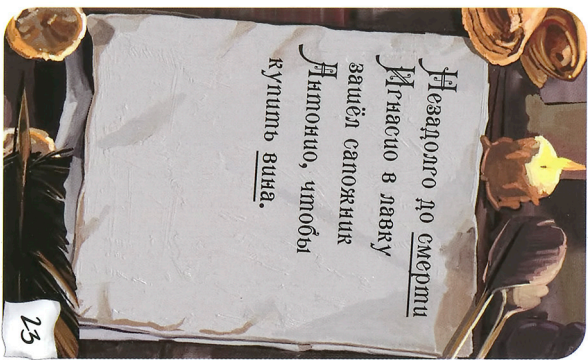 Незадолго до смерти
Игнасио в лавку
зашёл сапожник
Антонио, чтобы
купить вина.
23